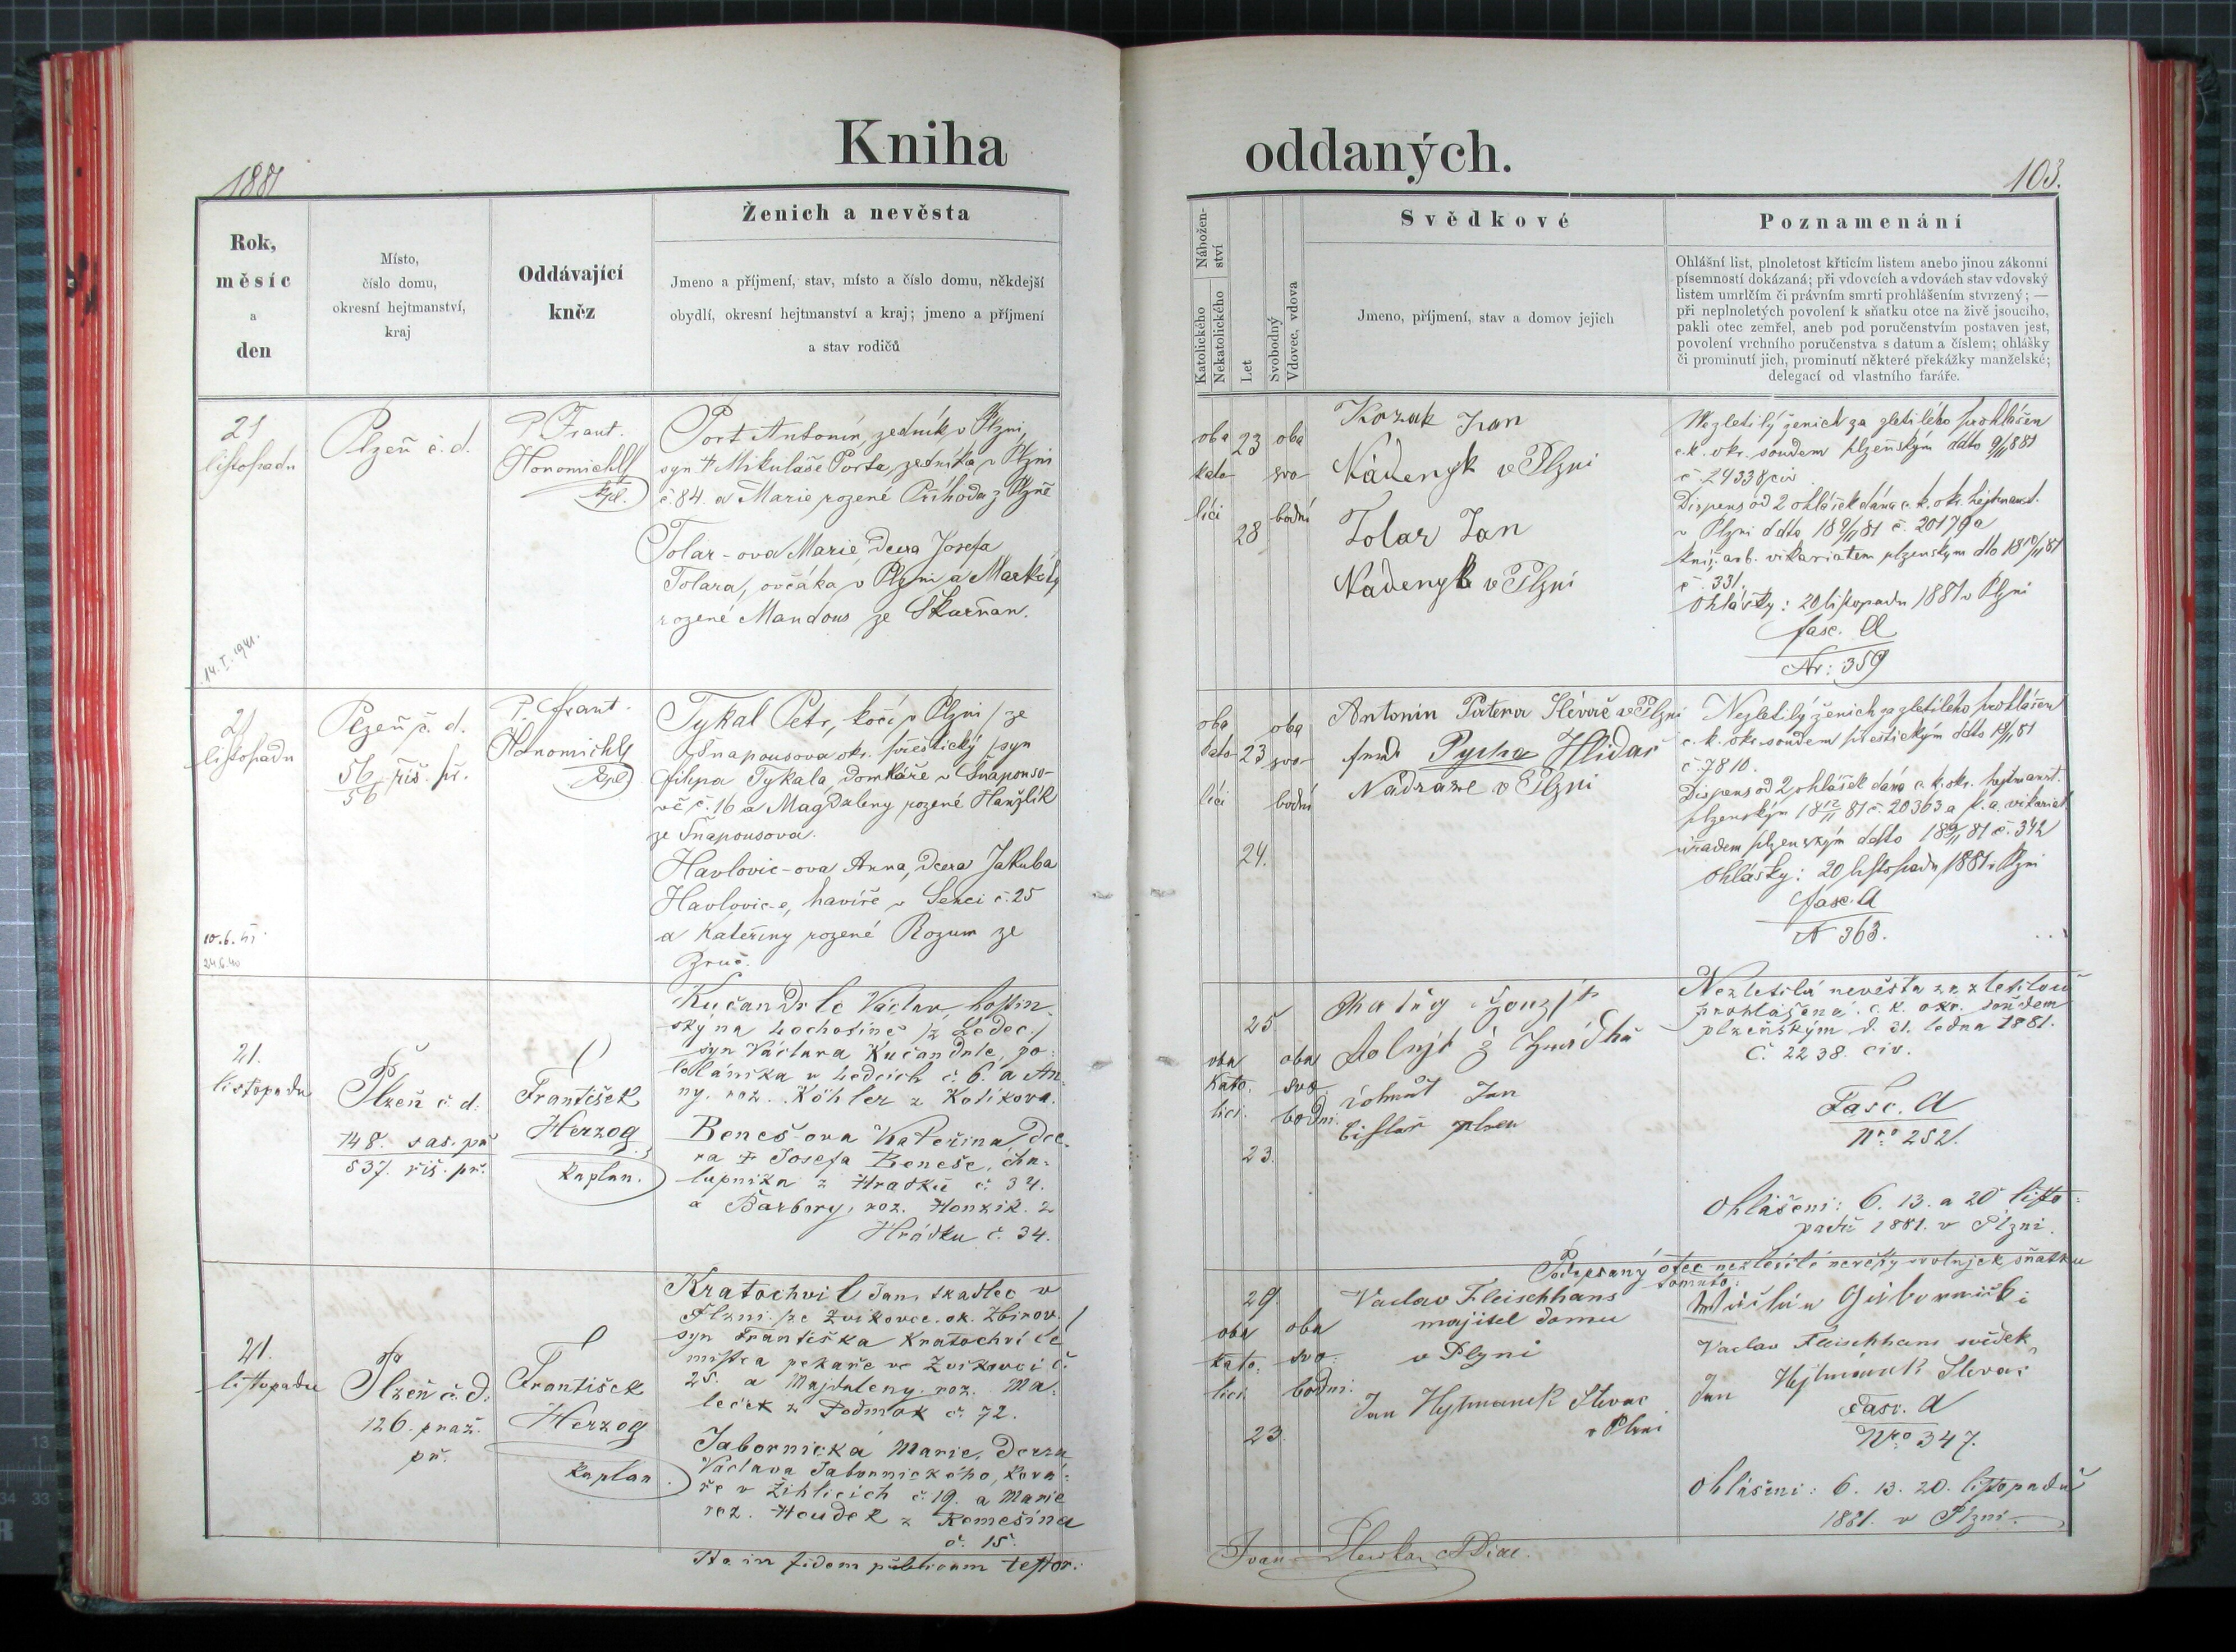 Kniha oddaných.
1881
103.
Rok,
měsíc
a
den
Místo,
číslo domu,
okresní hejtmanství,
kraj
Oddávající
kněz
Ženich a nevěsta
Jmeno a příjmení, stav, místo a číslo domu, někdejší
obydlí, okresní hejtmanství a kraj; jmeno a příjmení
a stav rodičů
Nábožen-
ství
Katolického
Nekatolického
Let
Svobodný
Vdovec, vdova
Svědkové
Jmeno, příjmení, stav a domov jejich
Poznamenání
Ohlášní list, plnoletost křticím listem anebo jinou zákonni
písemností dokázaná; při vdovcích a vdovách stav vdovský
listem umrlčím či právním smrti prohlášením stvrzený; —
při neplnoletých povolení k sňatku otce na živě jsoucího,
pakli otec zemřel, aneb pod poručenstvím postaven jest,
povolení vrchního poručenstva s datum a číslem; ohlášky
či prominutí jich, prominutí některé překážky manželské;
delegací od vlastního faráře.
21
listopadu
14. I. 1941.
Plzeň č. d.
P. Frant.
Honomichl
kpl.
Port Antonín, zedník v Plzni,
syn † Mikuláše Porta, zedníka v Plzni
č. 84. a Marie rozené Příhoda z Plzně
Tolar-ova Marie, dcera Josefa
Tolara, ovčáka v Plzni a Markéty
rozené Mandous ze Škarňan.
oba 23 oba
kato svo
líci bodní
28
Kozak Jan
Nádenyk v Plzni
Tolar Jan
Nádenyk v Plzni
Nezletilý ženich za zletilého prohlášen
c. k. okr. soudem plzeňským ddto 9/11 881
č. 24338 civ
Dispens od 2 ohlášek dána c. k. okr. hejtmanst.
v Plzni ddto 18 9/11 81 č. 20179 a
kníž. arb. vikariatem plzeňským dto 18 10/11 81
č. 331.
Ohlášky: 20 listopadu 1881 v Plzni
fasc. A
Nr: 359
21
listopadu
10. 6. 41
24.6.40
Plzeň č. d.
56 říš. př.
56
P. Frant.
Honomichl
kpl
Tykal Petr, kočí v Plzni / ze
Šnapousova okr. přeštický / syn
Filipa Tykala, domkáře v Šnapouso-
vě č. 16 a Magdaleny rozené Hanzlík
ze Šnapousova.
Havlovic-ova Anna, dcera Jakuba
Havlovic-e, havíře v Senci č. 25
a Kateřiny rozené Rozum ze
Zruč.
oba oba
kato 23 svo
líci bodní
24.
Antonín Patera Slévač v Plzni
Pycha Hlídač
Nádraze v Plzni
Nezletilý ženich za zletilého prohlášen
c. k. okr. soudem přeštickým ddto 10/11 81
č 7810.
Dispens od 2 ohlášek dána c. k. okr. hejtmanst.
plzenským 18 12/11 81 č. 20363 a k. a. vikariat
úřadem plzenským ddto 18 9/11 81 č. 342
Ohlášky: 20 listopadu 1881 v Plzni
fasc. A
N 363.
21.
listopadu
Plzeň č. d.
148. sas. př
537. říš. př.
František
Herzog,
kaplan.
Kučandrle Václav, hostin-
ský na Lochotíně /z Ledec./
syn Václava Kučandrle, po-
lláníka v Ledcích č. 6. a An-
ny, roz. Köhler z Kolikova.
Beneš-ova Kateřina, dce-
ra † Josefa Beneše, cha-
lupníka z Hrádků č. 34.
a Barbory, roz. Honzik z
Hrádku č. 34.
25
oba oba
kato. svo
líci. bodní.
23.
Jan
plzen
Nezletilá nevěsta za zletilou
prohlášena c. k. okr. soudem
plzeňským d. 31. ledna 1881.
Č. 2238. civ.
Fasc. A
Nro 252.
Ohlášeni: 6. 13. a 20 listo-
padu 1881. v Plzni.
21.
listopadu
Plzeň č. d.
126. praž.
př.
František
Herzog
kaplan
Kratochvil Jan, tkadlec v
Plzni /ze Zvikovce, ok. Zbirov./
syn Františka Kratochvíle
mistra pekaře ve Zvikovci č.
25. a Majdaleny roz. Ma-
leček z Podmok č. 72.
Jabornická Marie, dcera
Václava Jabornického, ková-
ře v Žihlicích č. 19. a Marie
roz. Houdek z Komešína
č. 15.
29.
oba oba
kato. svo
líci. bodní.
23.
Vaclav Fleischhans
majitel domu
v Plzni
Jan Hejtmanek Slevac
v Plzni
Podepsaný otec nezletilé nevěsty svoluje k sňatku
tomuto:
Vaclav Fleischhans svědek
Jan Hejtmánek Slevač
Fasc. A
Nro 347.
Ohlášeni: 6. 13. 20. listopadu
1881. v Plzni.
Ita in fidem publicam testor: